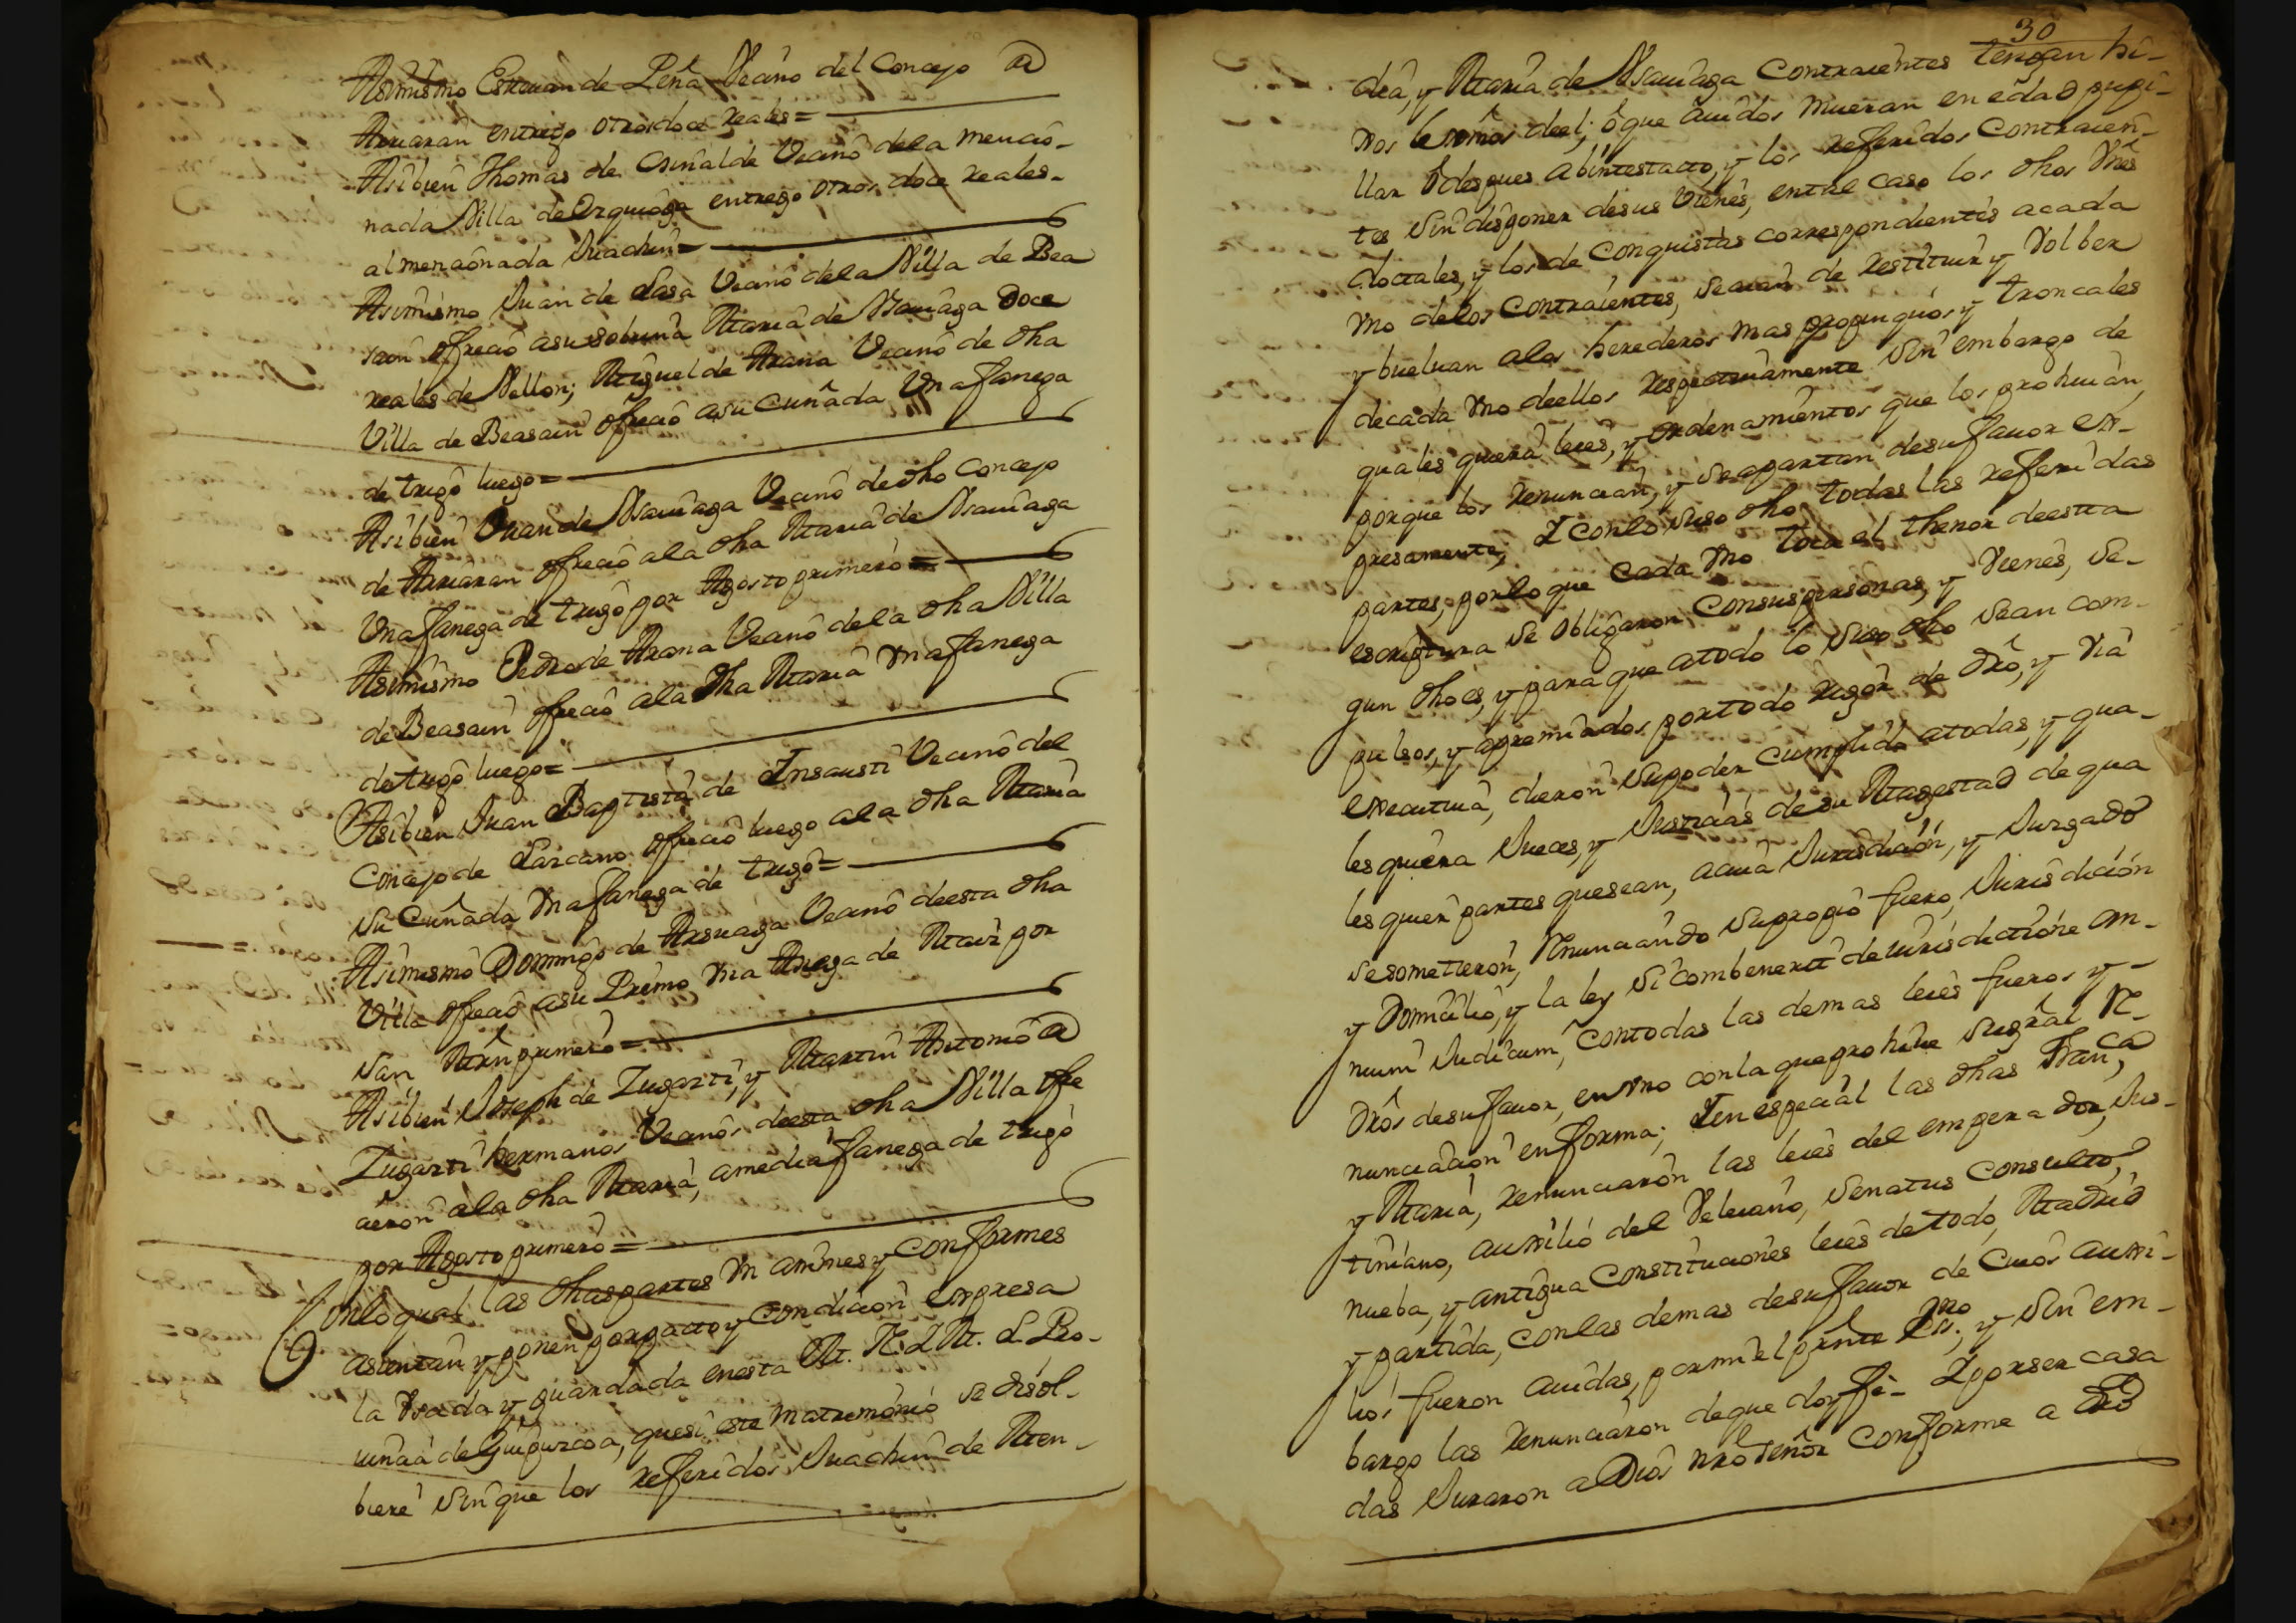 Asimismo Esteuan de Peña Vecino del Concejo de
Arriaran entrego otros doce reales =
Asibien Thomas de Osinalde Vecino dela mencio-
nada Villa de Ezquioga entrego otros doce reales
al mencionada Juachin =
Asimismo Juan de Lasa Vecino dela Villa de Bea
sain ofrecio asu sobrina Maria de Nsauſaga doce
reales de Vellon; Miguel de Arana Vecino de dha
Villa de Beasain ofrecio asu cuñada Vna fanega
de trigo luego =
Asibien Juan de Vecino de dho Concejo
de Arriaran ofrecio ala dha Maria de
Vna fanega de trigo por Agosto primero =
Asimismo Pedro de Arana Vecino dela dha Villa
de Beasain ofrecio ala dha Maria Vna fanega
de trigo luego =
Asibien Juan Baptista de Insausti Vecino del
Concejo de Lazcano ofrecio luego ala dha Maria
su Cuñada Vna fanega de trigo =
Asimismo Domingo de Arsuaga Vecino deesta dha
Villa ofrecio asu Primo Vna fanega de Maiz por
San Mrn primero =
Asibien Joseph de Zugazti, y Martin Antonio de
Zugazti hermanos, Vecinos deesta dha Villa ofre
cieron ala dha Maria, amedia fanega de trigo
por Agosto primero =
Con lo qual las dhas partes Vnanimes y conformes
asientan y ponen por pacto y condicion expresa
la Vsada y guardada enesta M. N. L M. L. Pro-
uincia de Guipuzcoa, que si este matrimonio se disol-
biere sin que los referidos Juachin de Men-
30
dia, y Maria de Contraientes tengan hi-
xos lexmos deel; o que auidos mueran en edad pupi-
llar o despues abintestatto, y los referidos Contraien-
tes sin disponer desus Vienes, ental caso los dhos Vnes
doctales, y los de Conquistas correspondientes acada
Vno delos Contraientes, se aian de restituir y Volber
y bueluan alos herederos mas propinquos, y troncales
decada Vno deellos respectiuamente sin embargo de
quales quiera leies, y ordenamientos que los prohiuan,
porque los renuncian, y se apartan desu fauor ex-
presamente; I conlo suso dho todas las referidas
partes, por lo que cada Vno toca el thenor deesta
escriptura se obligaron Consus personas, y Vienes, se-
gun dho es, y para que atodo lo suso dho sean com-
pulsos, y apremiados por todo rigor de dro, y Via
executiua, dieron su poder cumplido atodas, y qua-
les quiera Jueces, y Justicias de su Magestad de qua
les quier partes que sean, acuia Jurisdicion, y Juzgado
se sometieron, Renunciando su propio fuero, Jurisdicion
y Domicilio, y la ley si combenerit de iurisdictione om-
nium Judicum, con todas las demas leies fueros y
dros desu fauor, en Vno con la que prohiue su gral Re-
nunciacion en forma; I en especial las dhas Franca,
y Maria, renunciaron las leies del emperador Jus-
tiniano, auxilio del Veleiano, Senatus Consulto,
nueba, y antigua Constituciones leies de todo, Madrid
y partida, con las demas desu fauor de Cuios auxi-
lios fueron auidas, por mi el prnte essno, y sin em-
bargo las renunciaron de que doy fe - I por ser casa
das Juraron a Dios nro señor conforme a dro